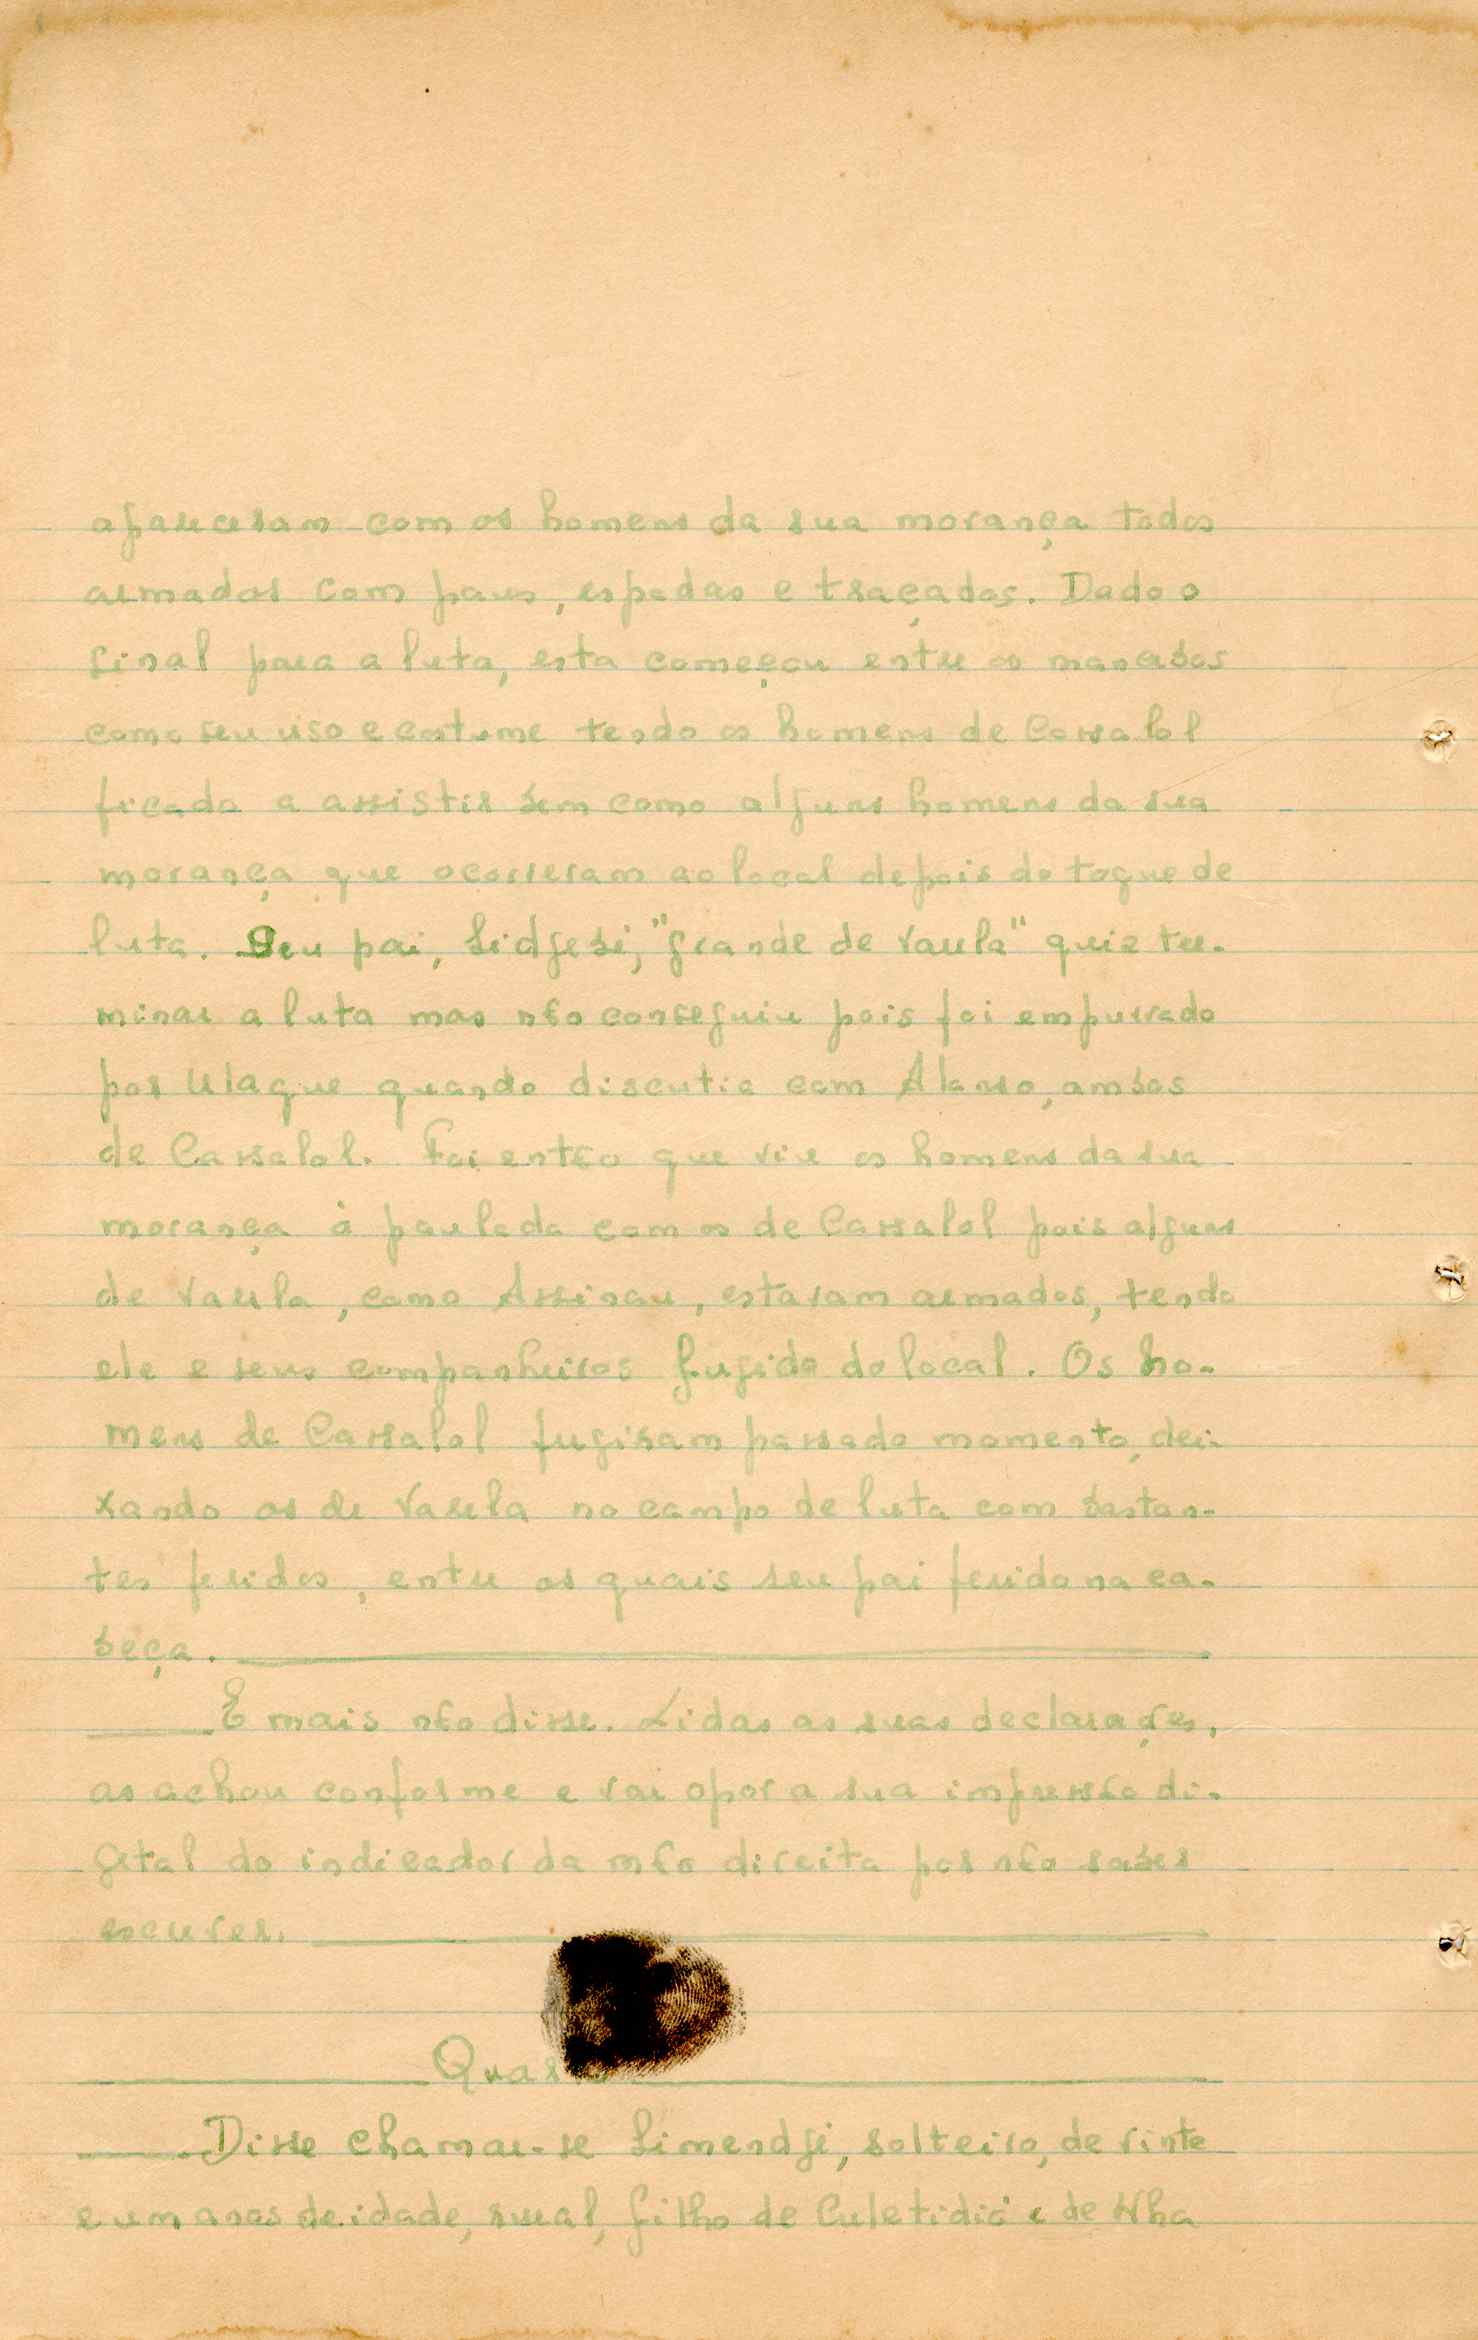 apareceram com os homens da sua morança todos
armados com paus, espadas e traçados. Dado o
sinal para a luta, esta começou entre os mancebos
como seu uso e costume tendo os homens de Cassalol
ficado a assistir bem como alguns homens da sua
morança que ocorreram ao local depois do toque de
luta. Seu pai, Sidjebi, "grande de Varela" quiz ter-
minar a luta mas não conseguiu pois foi empurrado
por Utaque quando discutia com Alanso, ambos
de Cassalol. Foi então que viu os homens da sua
morança à paulada com os de Cassalol pois alguns
de Varela, como Assinau, estavam armados, tendo
ele e seus companheiros fugido do local. Os ho-
mens de Cassalol fugiram passado momento, dei-
xando os de Varela no campo de luta com bastan-
tes feridos, entre os quais seu pai ferido na ca-
beça.
E mais não disse. Lidas as suas declarações,
as achou conforme e vai opor a sua impressão di-
gital do indicador da mão direita por não saber
escrever.
Disse chamar-se Simendji, solteiro, de vinte
e um anos de idade, rural, filho de Culetidié e de Nha